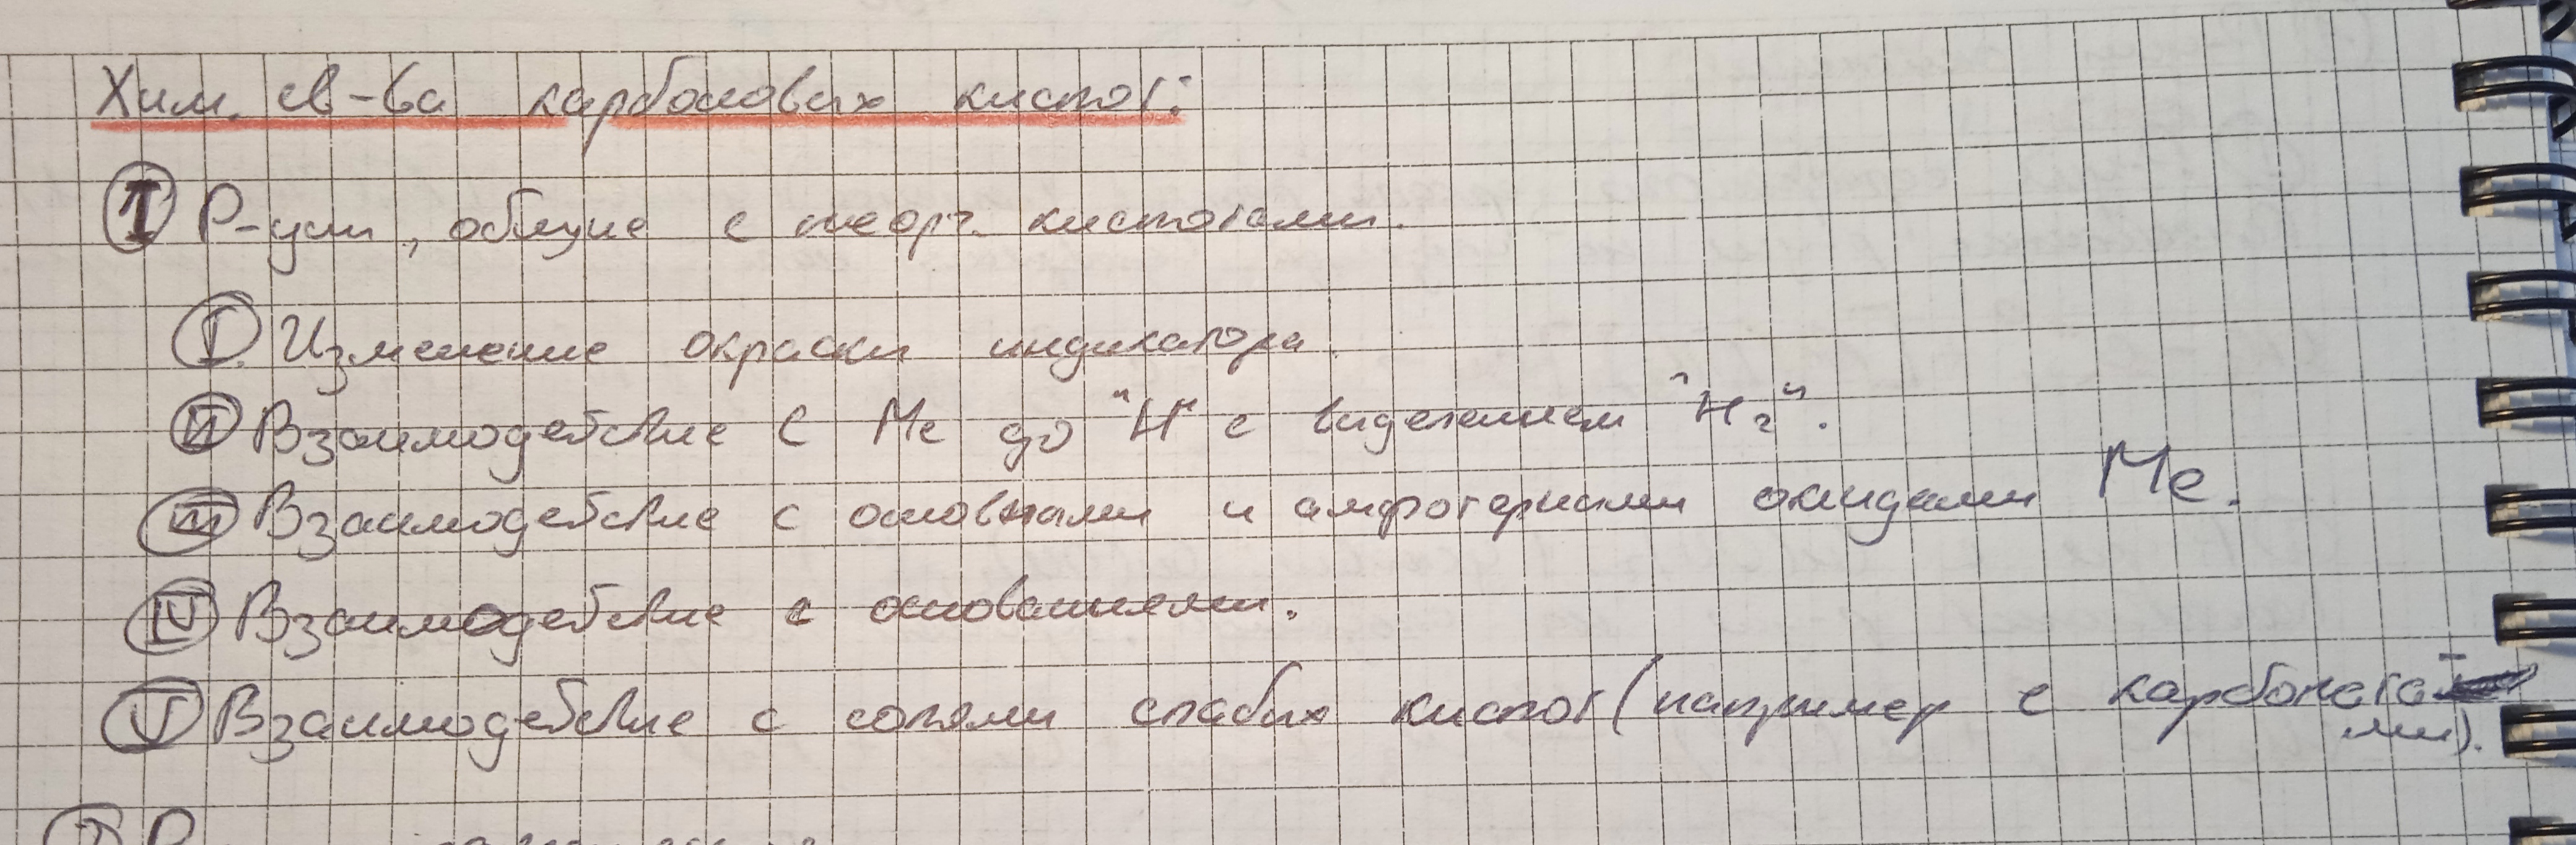 Хим. св-ва карбоновых кислот:
I Р-ции, общие с неорг. кислотами.
I. Изменение окраски индикатора.
II Взаимодействие с Ме до "Н" с выделением "Н₂".
III Взаимодействие с основными и амфотерными оксидами Ме.
IV Взаимодействие с основаниями.
V Взаимодействие с солями слабых кислот (например с карбоната-
ми).